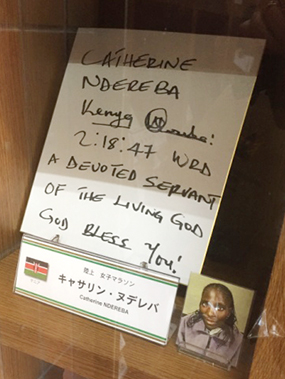 CATHERINE
NDEREBA
Kenya
2:18:47 WRD
A DEVOTED SERVANT
OF THE LIVING GOD
GOD BLESS YOU!
陸上 女子マラソン
キャサリン・ヌデレバ
Catherine NDEREBA